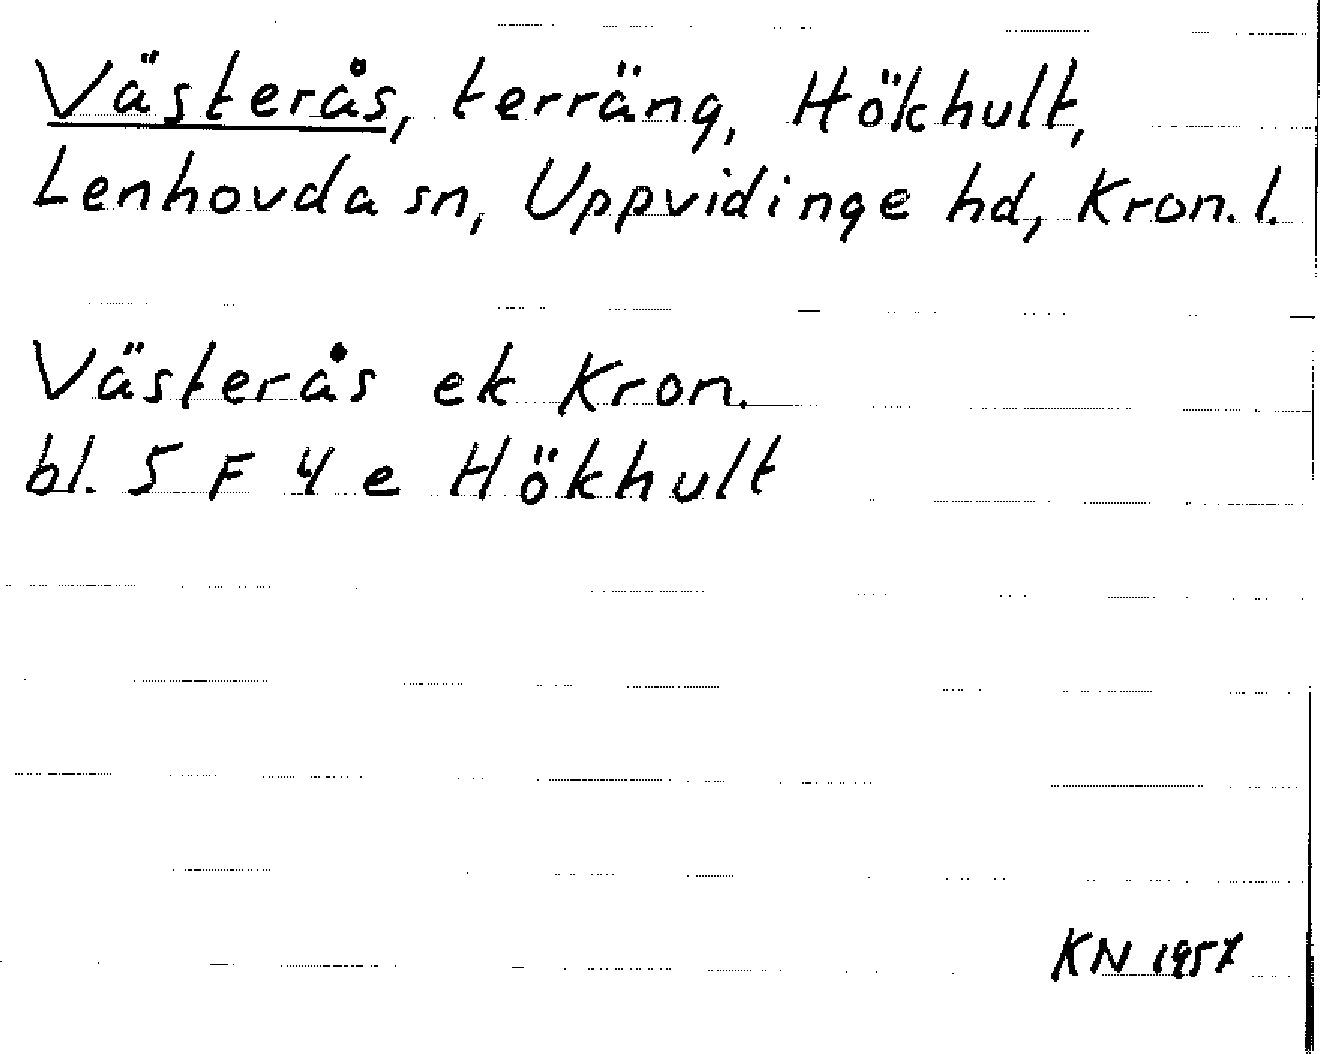 Västerås, terräng, Hökhult,
Lenhovda sn, Uppvidinge hd, Kron. l.
Västerås ek Kron.
bl. 5 F 4 e Hökhult
KN 1957